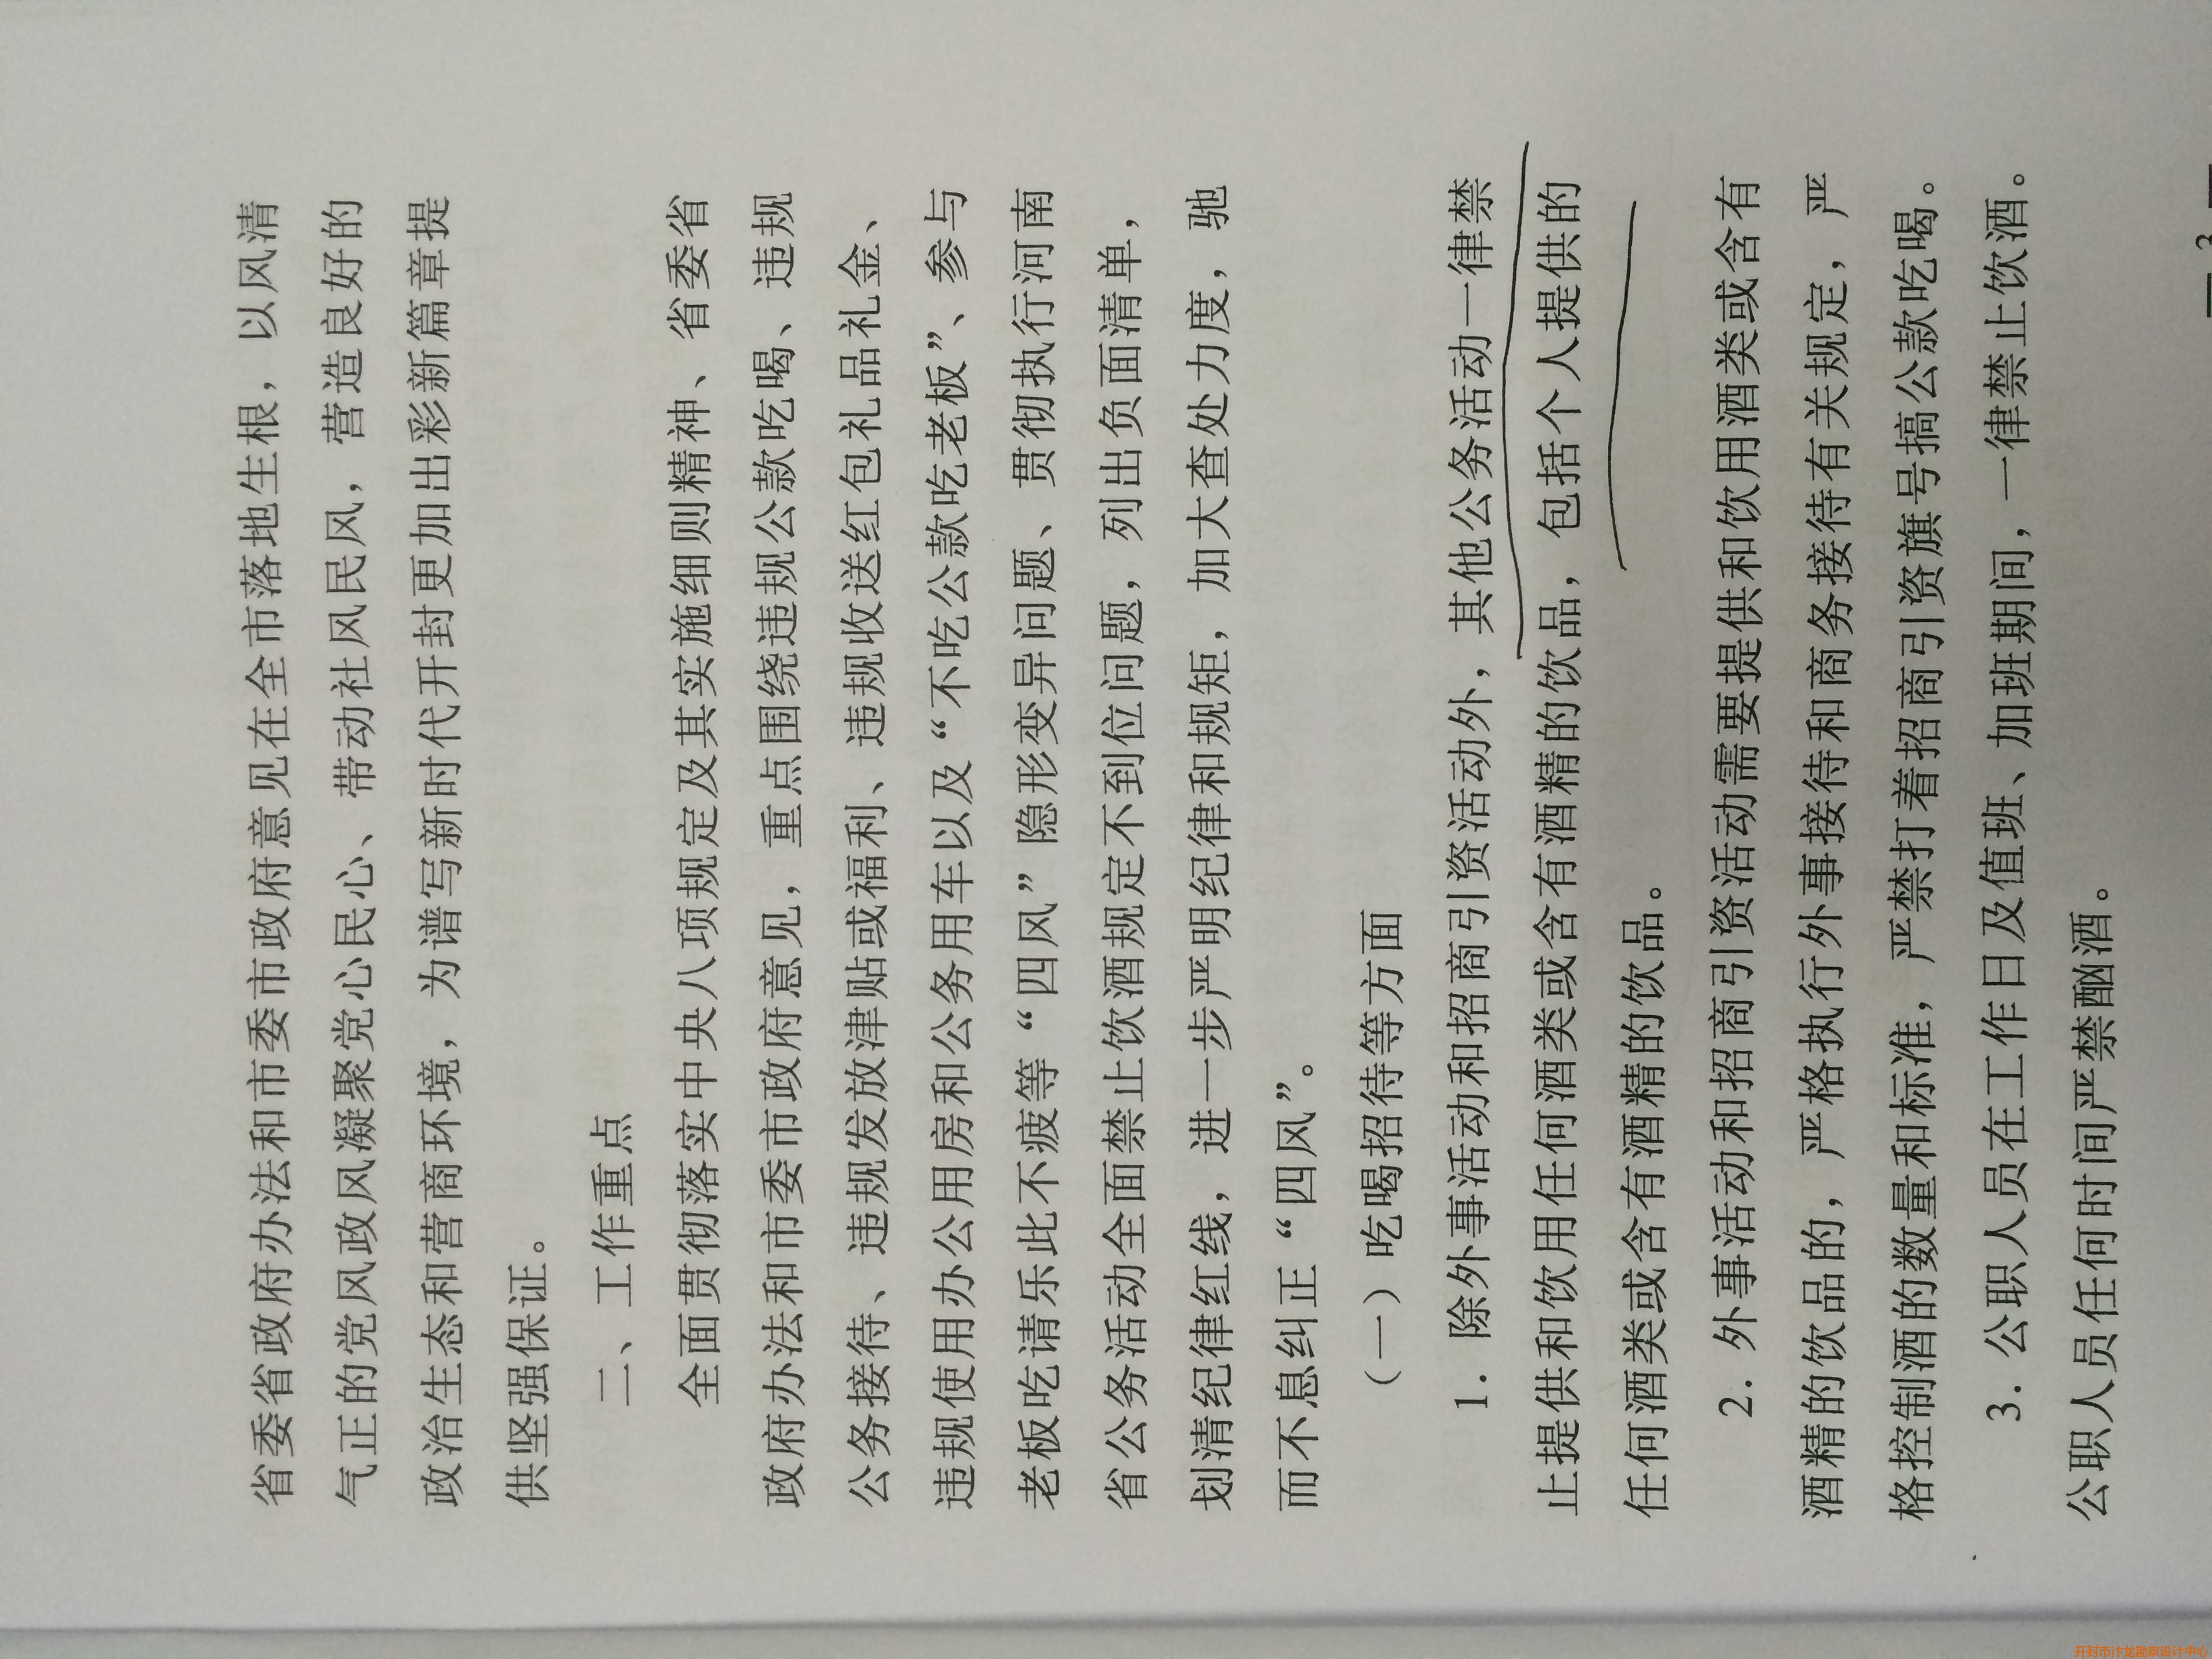 省委省政府办法和市委市政府意见在全市落地生根，以风清
气正的党风政风凝聚党心民心、带动社风民风，营造良好的
政治生态和营商环境，为谱写新时代开封更加出彩新篇章提
供坚强保证。
二、工作重点
全面贯彻落实中央八项规定及其实施细则精神、省委省
政府办法和市委市政府意见，重点围绕违规公款吃喝、违规
公务接待、违规发放津贴或福利、违规收送红包礼品礼金、
违规使用办公用房和公务用车以及“不吃公款吃老板”、参与
老板吃请乐此不疲等“四风”隐形变异问题、贯彻执行河南
省公务活动全面禁止饮酒规定不到位问题，列出负面清单，
划清纪律红线，进一步严明纪律和规矩，加大查处力度，驰
而不息纠正“四风”。
（一）吃喝招待等方面
1. 除外事活动和招商引资活动外，其他公务活动一律禁
止提供和饮用任何酒类或含有酒精的饮品，包括个人提供的
任何酒类或含有酒精的饮品。
2. 外事活动和招商引资活动需要提供和饮用酒类或含有
酒精的饮品的，严格执行外事接待和商务接待有关规定，严
格控制酒的数量和标准，严禁打着招商引资旗号搞公款吃喝。
3. 公职人员在工作日及值班、加班期间，一律禁止饮酒。
公职人员任何时间严禁酗酒。
— 3 —
开封市汴龙勘察设计中心